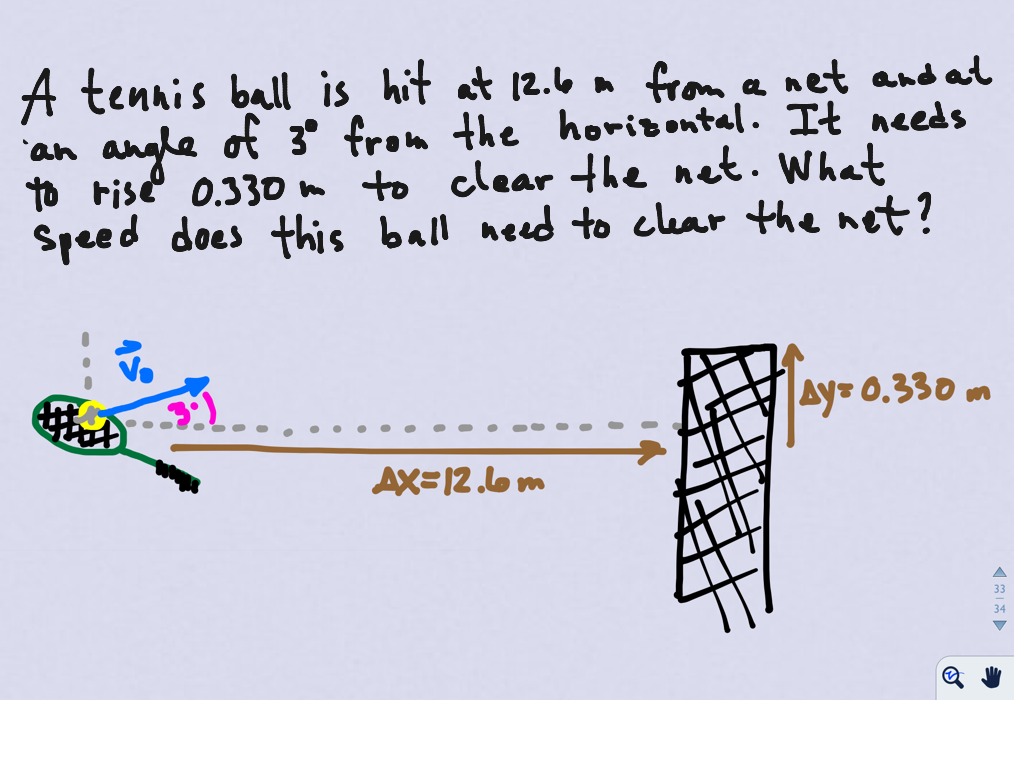 A tennis ball is hit at 12.6 m from a net and at
an angle of 3° from the horizontal. It needs
to rise 0.330 m to clear the net. What
speed does this ball need to clear the net?
V₀
3°
Δy = 0.330 m
Δx = 12.6 m
33
34